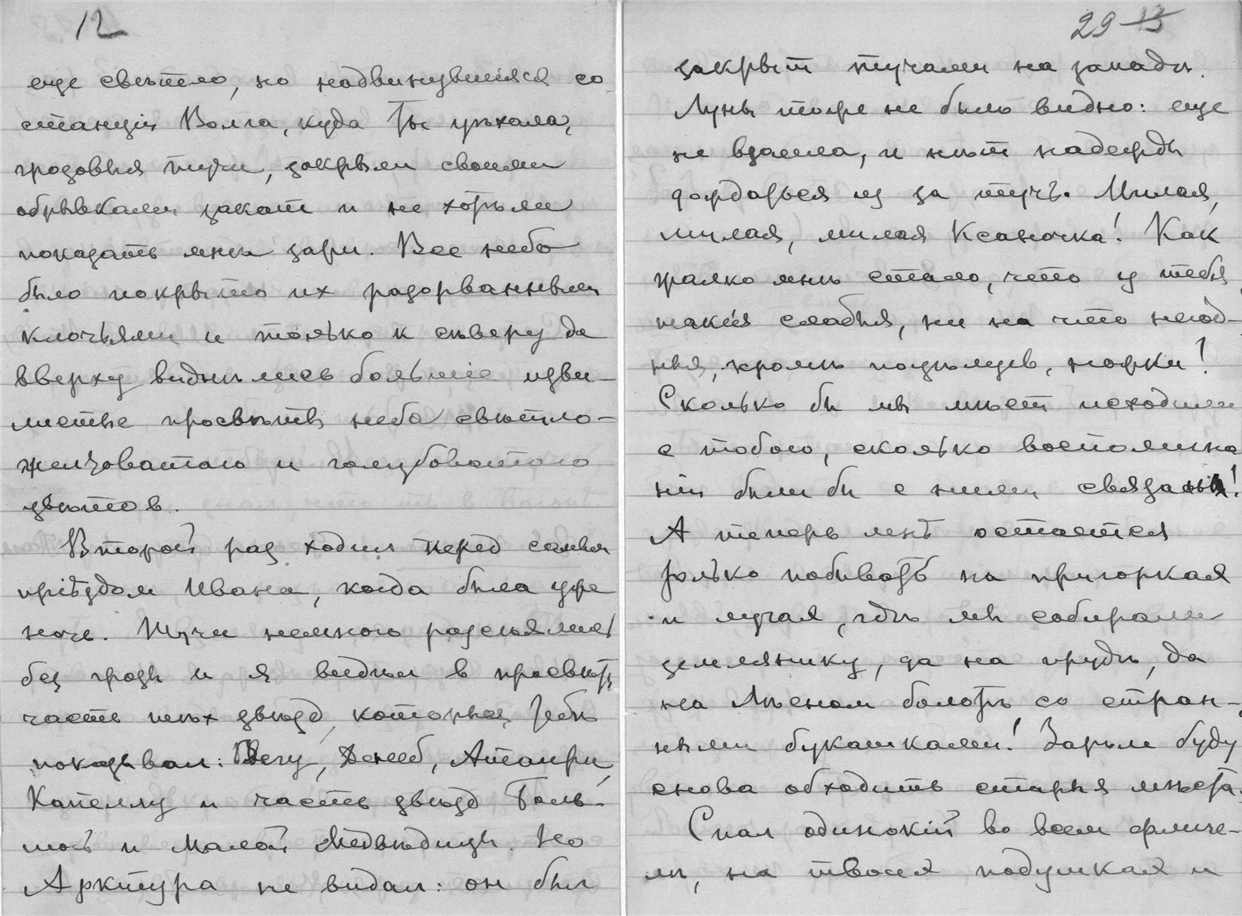 12
еще свѣтло, но надвинувшіяся со
станціи Волга, куда Ты уѣхала,
грозовыя тучи, закрыли своими
обрывками закат и не хотѣли
показать мнѣ зари. Все небо
было покрыто их разорванными
клочьями и только к сѣверу да
вверху виднѣлись большіе изви-
листые просвѣты неба свѣтло-
желтоватаго и голубоватаго
цвѣтов.
Второй раз ходил перед самым
пріѣздом Ивана, когда была уже
ночь. Тучи немного разсѣялись
без грозы и я видѣл в просвѣты
часть тѣх звѣзд, которыя Тебѣ
показывал: Вегу, Денеб, Атаири,
Капеллу и часть звѣзд Боль-
шой и Малой Медвѣдицы. Но
Арктура не видал: он был
29 13
закрыт тучами на западѣ.
Луны тоже не было видно: еще
не взошла, и нѣт надежды
дождаться из за туч. Милая,
милая, милая Ксаночка! Как
жалко мнѣ стало, что у тебя
такія слабыя, ни на что негод-
ныя, кромѣ поцѣлуев, ножки!
Сколько бы мы мѣст исходили
с тобою, сколько воспомина
ній были бы с ними связаны!
А теперь мнѣ остается
только побывать на пригорках
и лугах, гдѣ мы собирали
землянику, да на пруду, да
на Лѣсном болотѣ со стран-
ными букашками! Зарѣ буду
снова обходить старыя мѣста.
Спал одинокій во всем флиге-
лѣ, на твоих подушках и